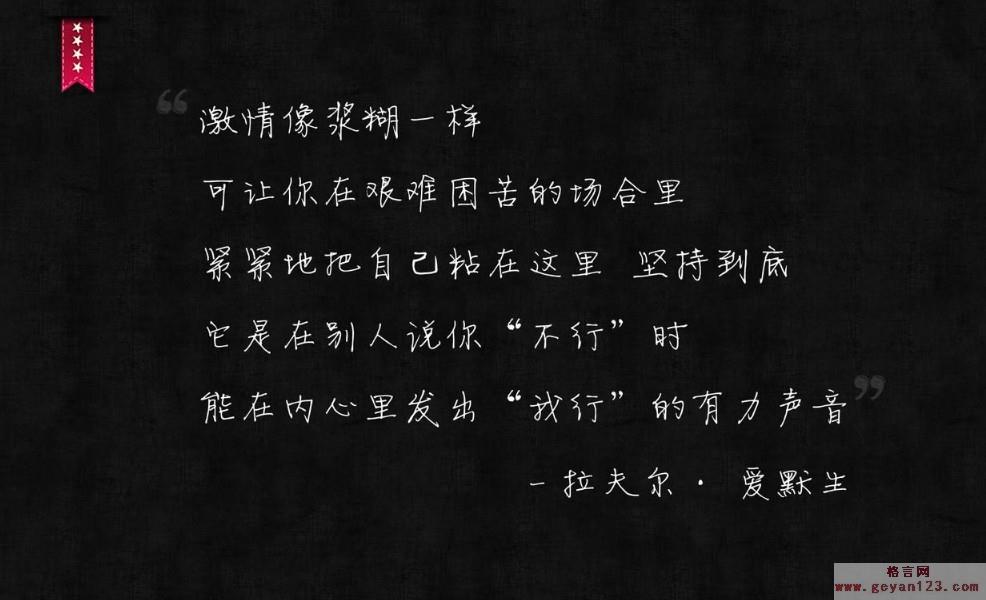 “激情像浆糊一样
可让你在艰难困苦的场合里
紧紧地把自己粘在这里 坚持到底
它是在别人说你“不行”时
能在内心里发出“我行”的有力声音”
-拉夫尔· 爱默生
格言网
www.geyan123.com